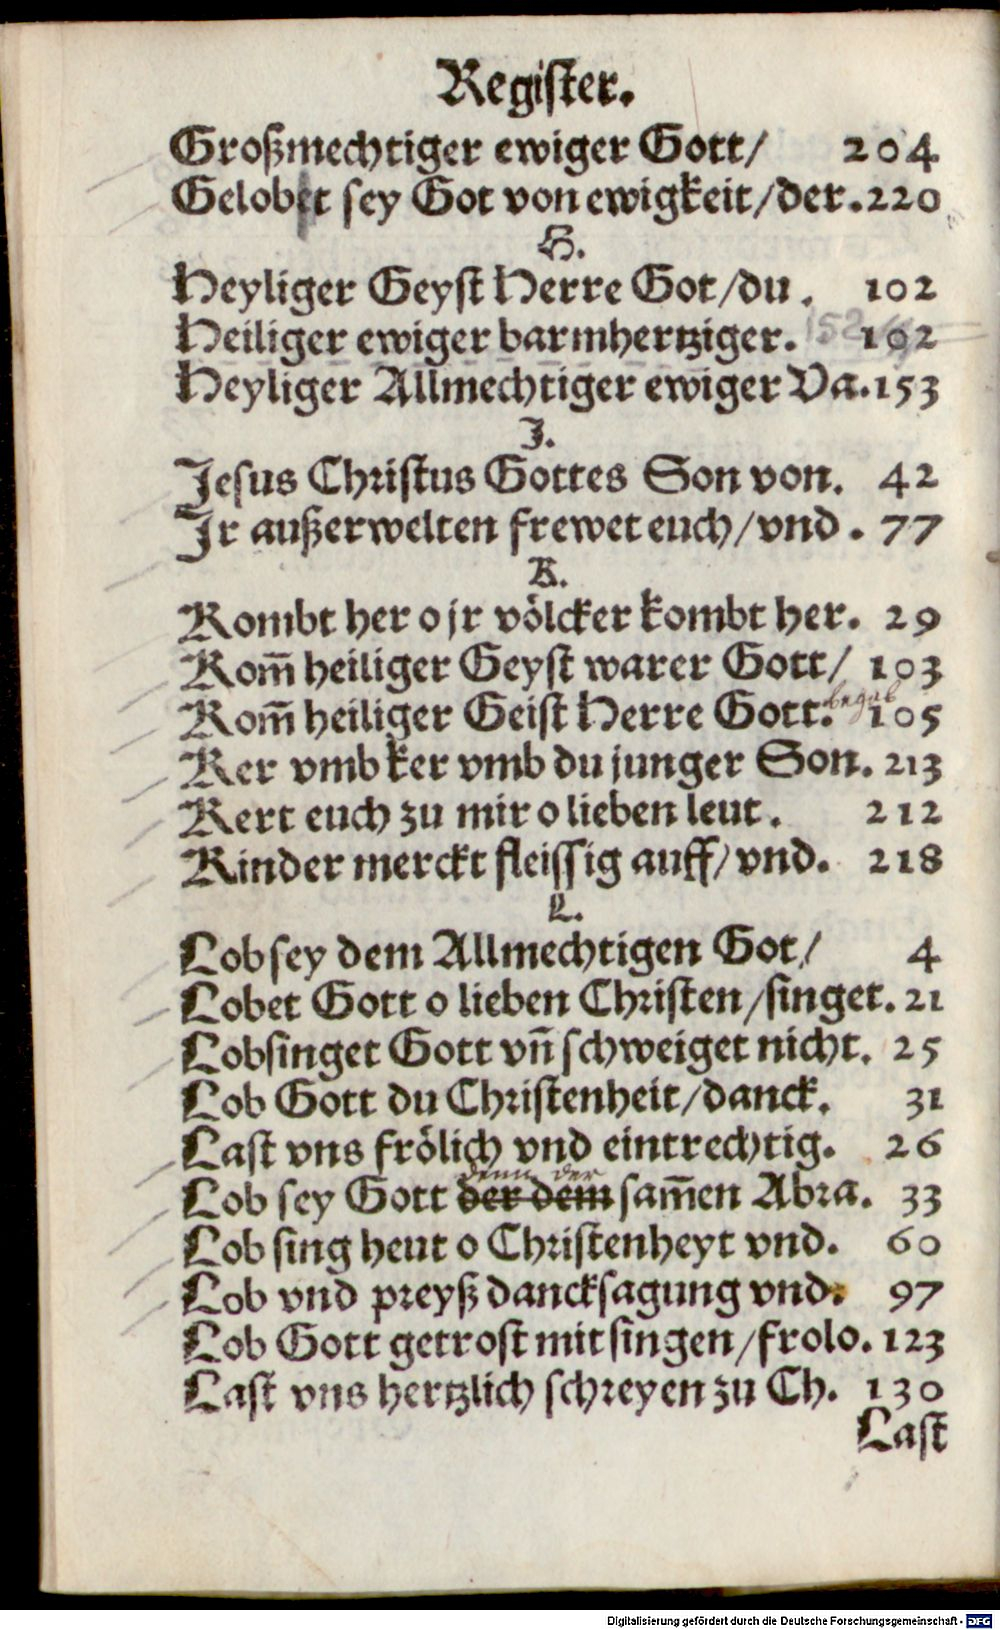 Register.
Großmechtiger ewiger Gott/ 204
Gelobet sey Got von ewigkeit/der. 220
H.
Heyliger Geyst Herre Got/du. 102
Heiliger ewiger barmhertziger. 152 192
Heyliger Allmechtiger ewiger Va. 153
J.
Jesus Christus Gottes Son von. 42
Jr außerwelten frewet euch/vnd. 77
K.
Kombt her o jr völcker kombt her. 29
Kom̄ heiliger Geyst warer Gott/ 103
begab
Kom̄ heiliger Geist Herre Gott. 105
Ker vmb ker vmb du junger Son. 213
Kert euch zu mir o lieben leut. 212
Kinder merckt fleissig auff/vnd. 218
L.
Lob sey dem Allmechtigen Got/ 4
Lobet Gott o lieben Christen/singet. 21
Lobsinget Gott vñ schweiget nicht. 25
Lob Gott du Christenheit/danck. 31
Last vns frölich vnd eintrechtig. 26
denn der
Lob sey Gott der dem sam̄en Abra. 33
Lob sing heut o Christenheyt vnd. 60
Lob vnd preyß dancksagung vnd. 97
Lob Gott getrost mit singen/frolo. 123
Last vns hertzlich schreyen zu Ch. 130
Last
Digitalisierung gefördert durch die Deutsche Forschungsgemeinschaft - DFG